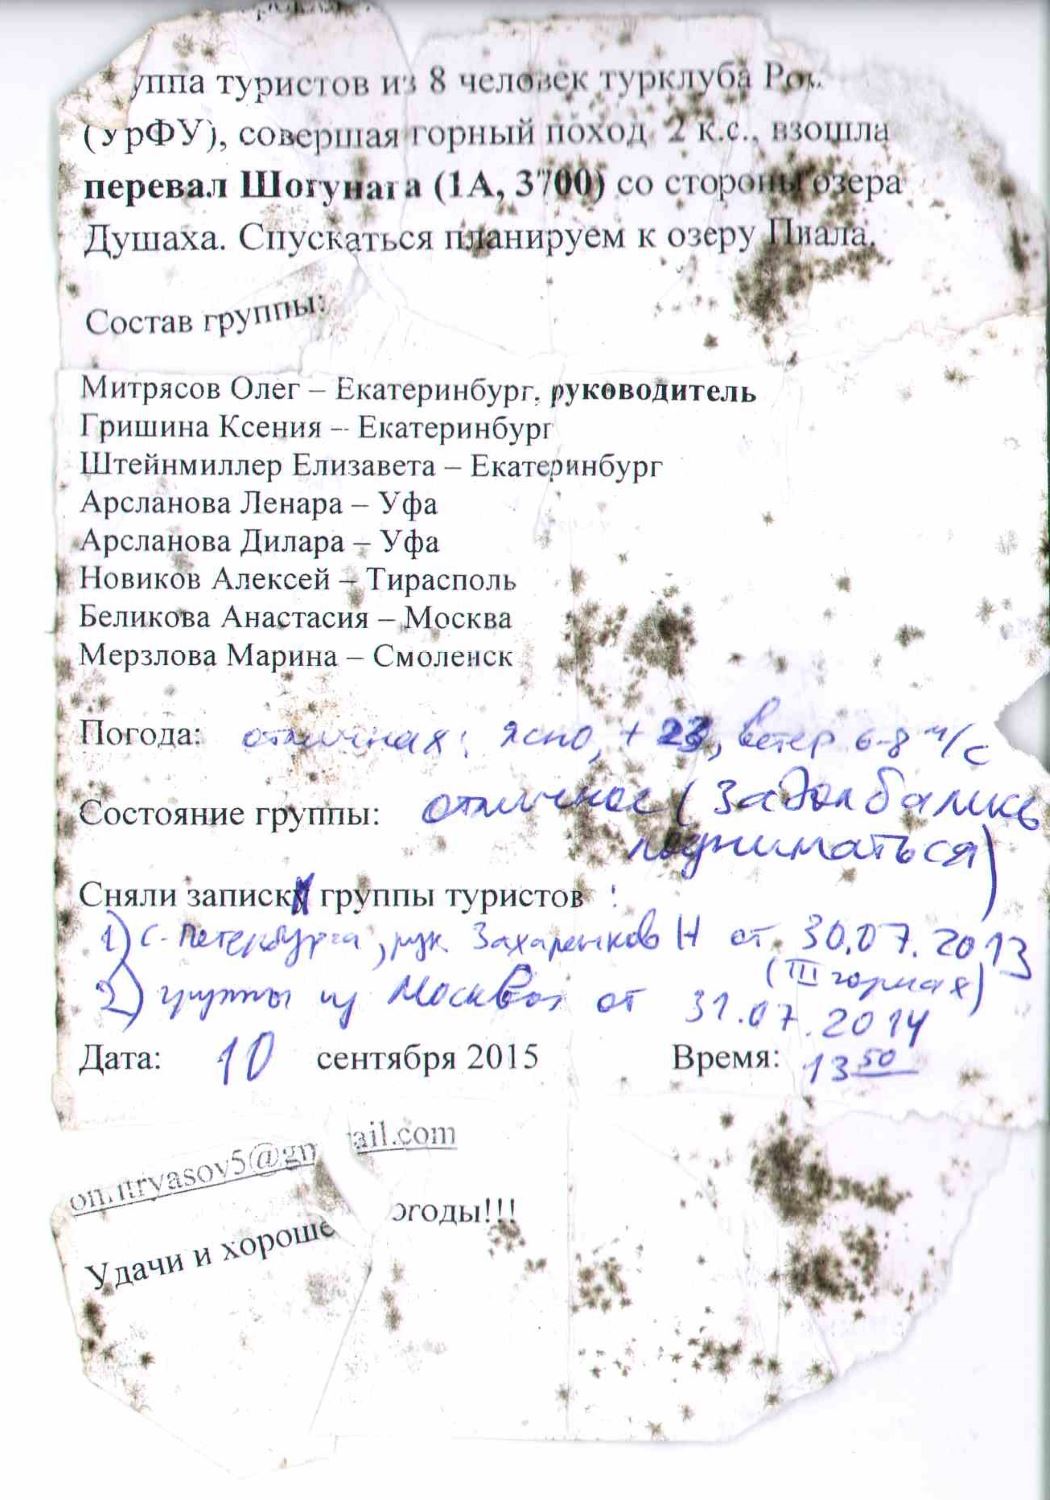 уппа туристов из 8 человек турклуба Ром
(УрФУ), совершая горный поход 2 к.с., взошла
перевал Шогунага (1А, 3700) со стороны озера
Душаха. Спускаться планируем к озеру Пиала.
Состав группы:
Митрясов Олег – Екатеринбург, руководитель
Гришина Ксения – Екатеринбург
Штейнмиллер Елизавета – Екатеринбург
Арсланова Ленара – Уфа
Арсланова Дилара – Уфа
Новиков Алексей – Тирасполь
Беликова Анастасия – Москва
Мерзлова Марина – Смоленск
Погода: отличная: ясно, +23, ветер 6-8 м/с
Состояние группы: отличное (задолбались
подниматься)
Сняли записки группы туристов :
1) С.-Петербурга, рук. Захаренков Н от 30.07.2013
(III горная)
2) группы из Москвы от 31.07.2014
Дата: 10 сентября 2015 Время: 13 50
omitryasov5@gm ail.com
Удачи и хороше огоды!!!